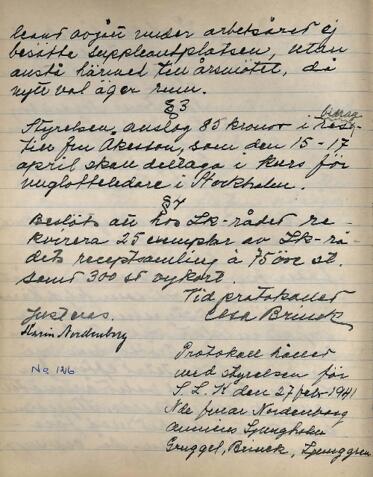 lent avgått under arbetsåret ej
besätta suppleantplatsen, utan
anstå härmed till årsmötet, då
nytt val äger rum.
§ 3
Styrelsen anslog 85 kronor i rese-
bidrag
till fru Åkesson, som den 15-17
april skall deltaga i kurs för
ungloteledare i Stockholm.
§ 4
Beslöts att hos Lk-rådet re-
kvirera 25 exemplar av Lk-rå-
dets receptsamling à 75 öre st.
samt 300 st vykort.
Vid protokollet
Elsa Brinck
Justeras.
Karin Nordenborg
No 1216
Protokoll hållet
med styrelsen för
S. L. K den 27 febr 1941
Nde fruar Nordenborg
Ljungholm
Gruggel, Brinck, Ljunggren